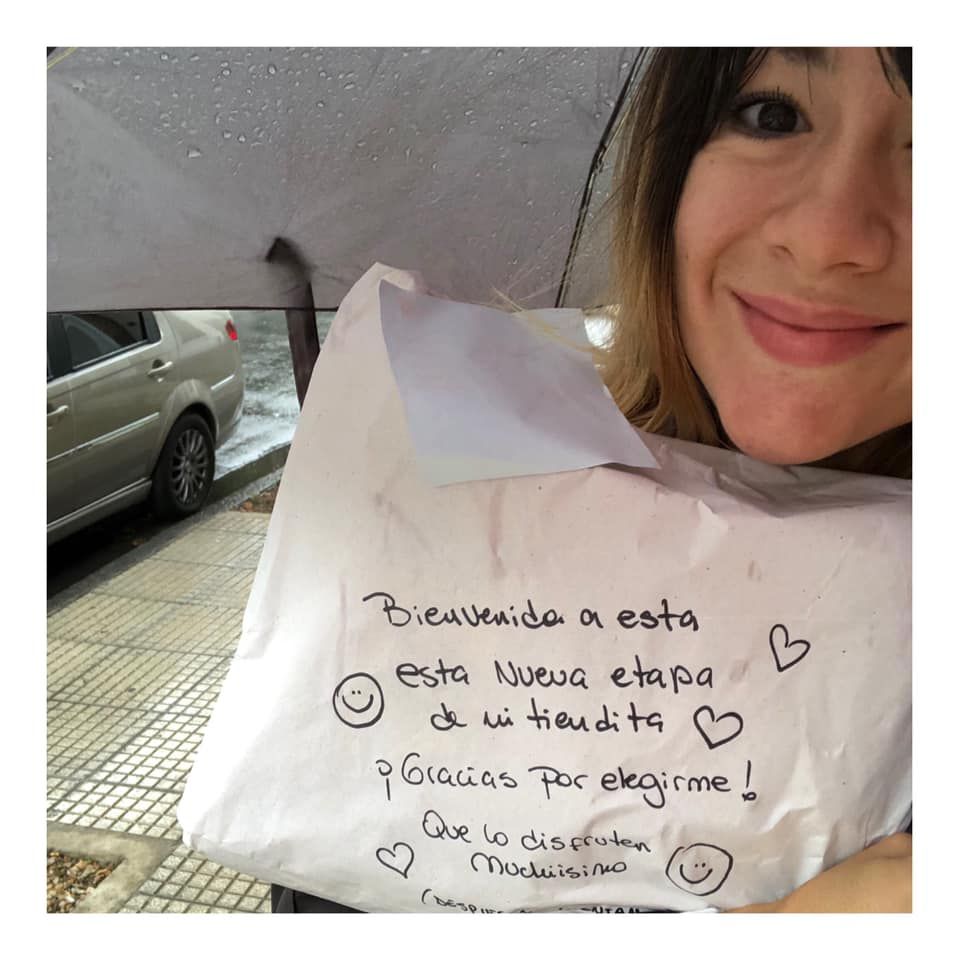 Bienvenida a esta
esta Nueva etapa
de mi tiendita
¡Gracias por elegirme!
Que lo disfruten
Muchiisimo